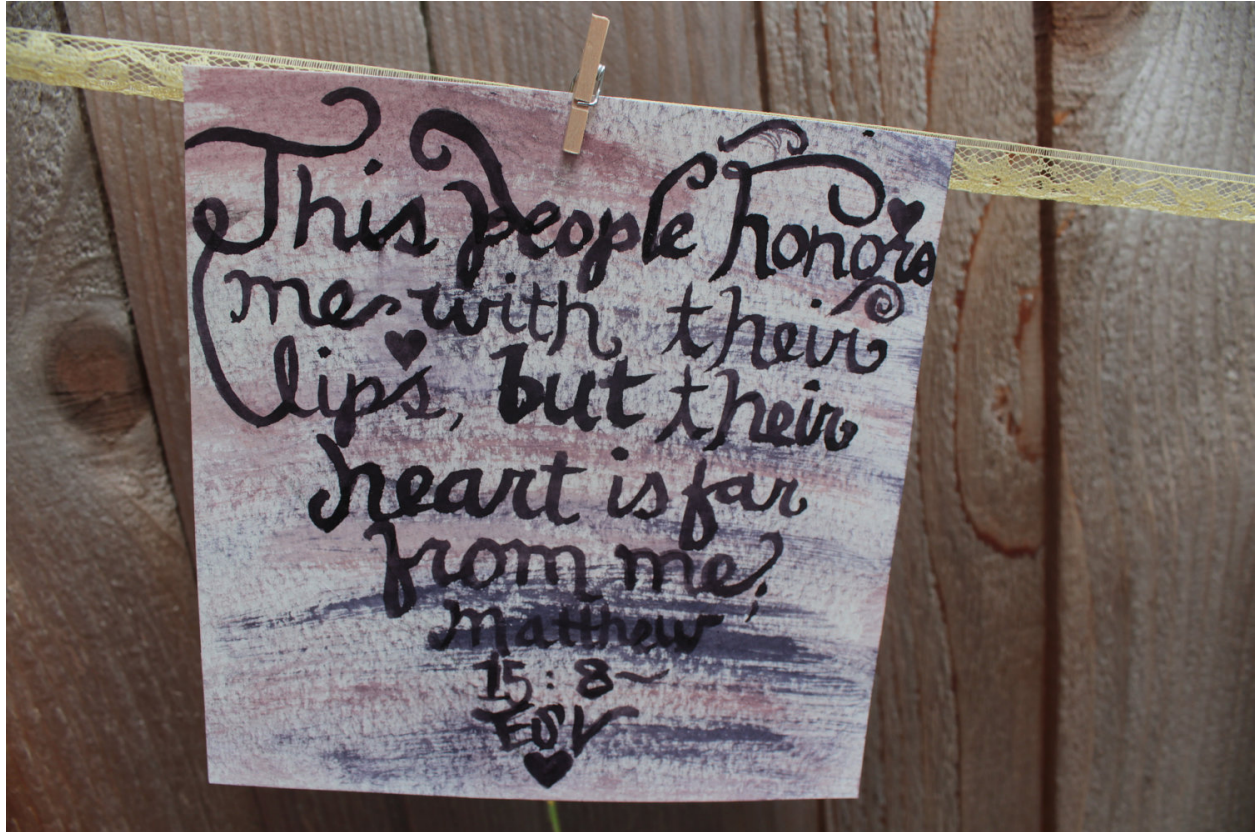 This people honors
me with their
lips, but their
heart is far
from me;
Matthew
15:8~
ESV